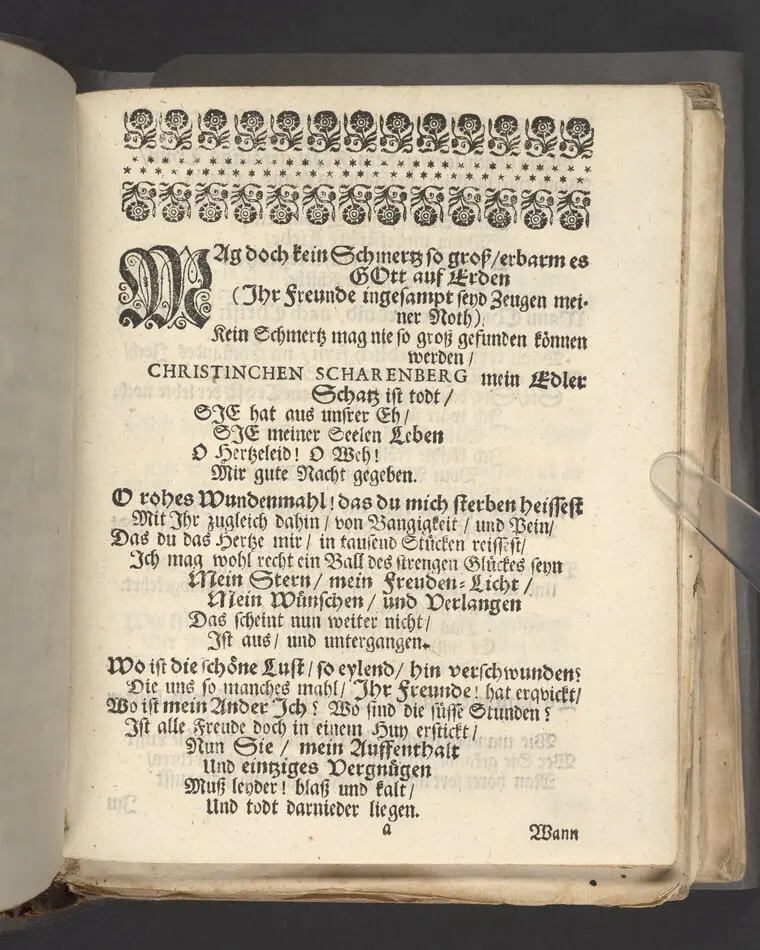 MAg doch kein Schmertz so groß/erbarm es
GOtt auf Erden
(Ihr Freunde ingesampt seyd Zeugen mei-
ner Noth),
Kein Schmertz mag nie so groß gefunden können
werden /
CHRISTINCHEN SCHARENBERG mein Edler
Schatz ist todt /
SIE hat aus unsrer Eh/
SIE meiner Seelen Leben
O Hertzeleid! O Weh!
Mir gute Nacht gegeben.
O rohes Wundenmahl! das du mich sterben heissest
Mit Ihr zugleich dahin / von Bangigkeit / und Pein/
Das du das Hertze mir / in tausend Stücken reissest/
Ich mag wohl recht ein Ball des strengen Glückes seyn
Mein Stern / mein Freuden-Licht /
Mein Wünschen / und Verlangen
Das scheint nun weiter nicht/
Ist aus/ und untergangen.
Wo ist die schöne Lust / so eylend/ hin verschwunden?
Die uns so manches mahl/ Ihr Freunde! hat erqvickt/
Wo ist mein Ander Ich? Wo sind die süsse Stunden?
Ist alle Freude doch in einem Huy erstickt/
Nun Sie / mein Auffenthalt
Und eintziges Vergnügen
Muß leyder! blaß und kalt/
Und todt darnieder liegen.
a
Wann